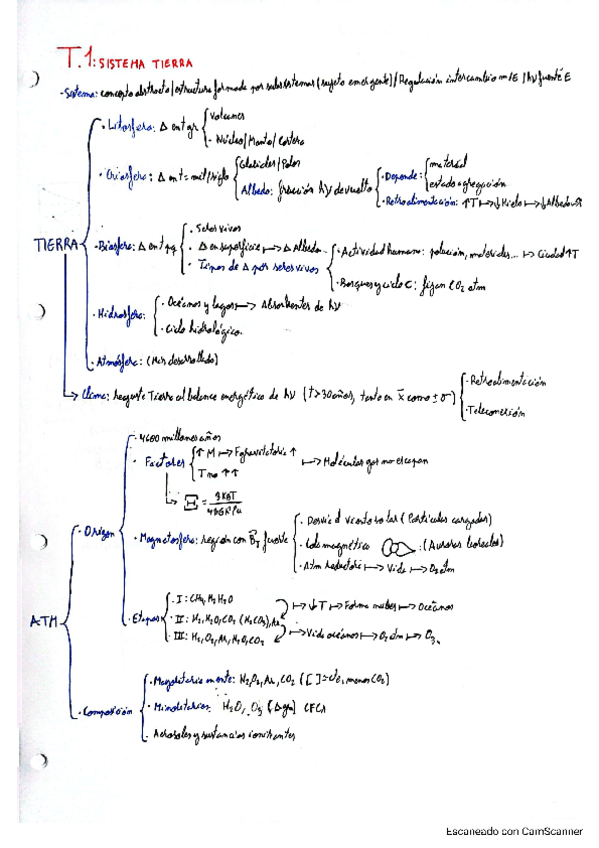 T.1: SISTEMA TIERRA
- Sistema: concepto abstracto/estructura formada por subsistemas (sujeto emergente)/Regulación intercambio m/E / hν fuente E
TIERRA
· Litosfera: Δ ent gr
Volcanes
· Núcleo/Manto/Corteza
· Criosfera: Δ ent = mil/siglo
Glaciares/Polos
Albedo: fracción hν devuelto
· Depende:
material
estado agregación
· Retroalimentación: ↑T ↦ ↓Hielo ↦ ↓Albedo
· Biosfera: Δ ent pq
· Seres vivos
· Δ en superficie ↦ Δ Albedo
· Tipos de Δ por seres vivos
· Actividad humana: polución, materiales... ↦ Ciudad ↑T
· Bosques y ciclo C: fijan CO2 atm
· Hidrosfera:
· Océanos y lagos ↦ Absorbentes de hν
· Ciclo hidrológico
· Atmósfera: (Más desarrollado)
Clima: Reajuste Tierra al balance energético de hν (t>30años, tanto en x̄ como ±σ)
· Retroalimentación
· Teleconexión
ATM
· Origen
· 4600 millones años
· Factores
↑M ↦ F gravitatoria ↑
T no ↑↑
↦ Moléculas gas no escapan
Ξ = 3KBT
· Magnetosfera: región con B⃗T fuerte
· Desvía el viento solar (Partículas cargadas)
· Cola magnética : (Auroras boreales)
· Atm Reductora ↦ Vida ↦ O2 atm
· Etapas
· I: CH4, H2, H2O
· II: H2, H2O, CO2 (N2, CO2), Ar
· III: N2, O2, Ar, H2O, CO2
↦ ↓T ↦ Forma nubes ↦ Océanos
↦ Vida océanos ↦ O2 atm ↦ O3
· Composición
· Mayoritariamente: N2, O2, Ar, CO2 ([ ] = cte, menos CO2)
· Minoritarios: H2O, O3
· Aerosoles y sustancias
Escaneado con CamScanner